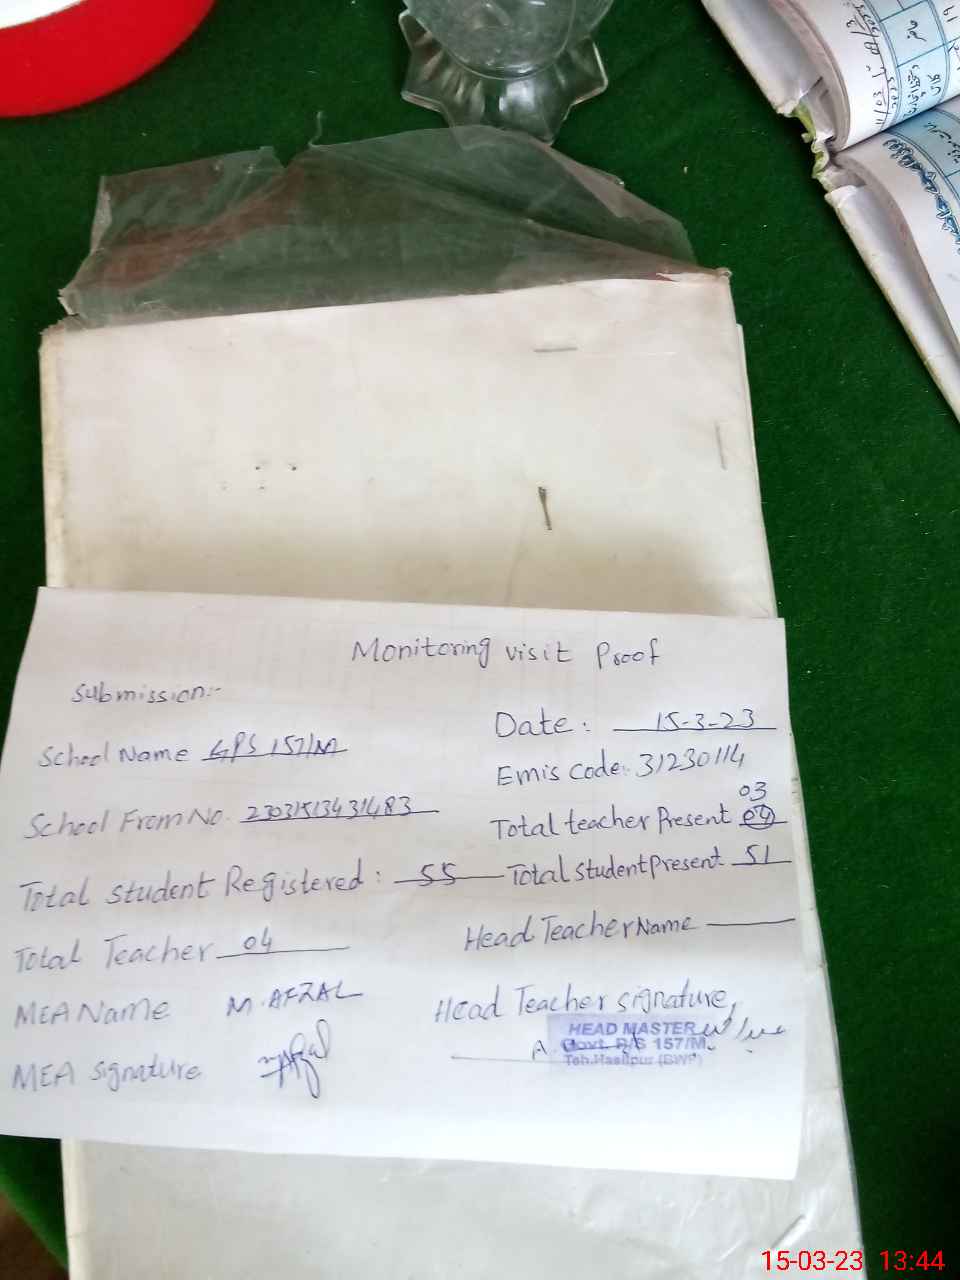 Monitoring visit Proof
Submission:-
Date: 15-3-23
School Name GPS 157/M
Emis Code: 31230114
School From No. 2303151343 1483
03
Total teacher Present 04
Total student Registered: 55 Total student Present 51
Total Teacher 04
Head Teacher Name
MEA Name M. AFZAL
Head Teacher signature
HEAD MASTER
Govt. P/S 157/M
Teh. Hasilpur (BWP)
MEA signature
15-03-23 13:44